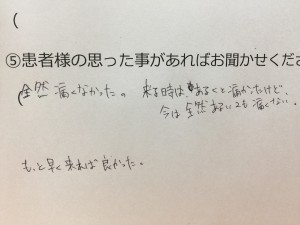 (
⑤患者様の思った事があればお聞かせくださ
全然痛くなかった。来る時は、あるくと痛かったけど、
今は全然あるいても痛くない。
もっと早く来れば良かった。